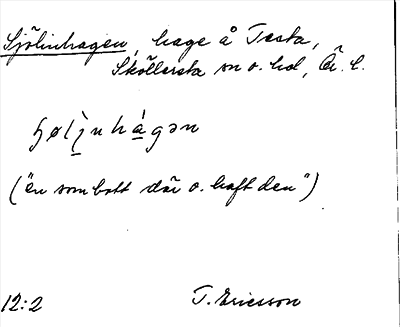 Sjölinhagen, hage å Testa,
Sköllersta sn o. hd, Ör. l.
ɧølìnhágən
("en som bott där o. haft den")
12:2 T. Ericsson